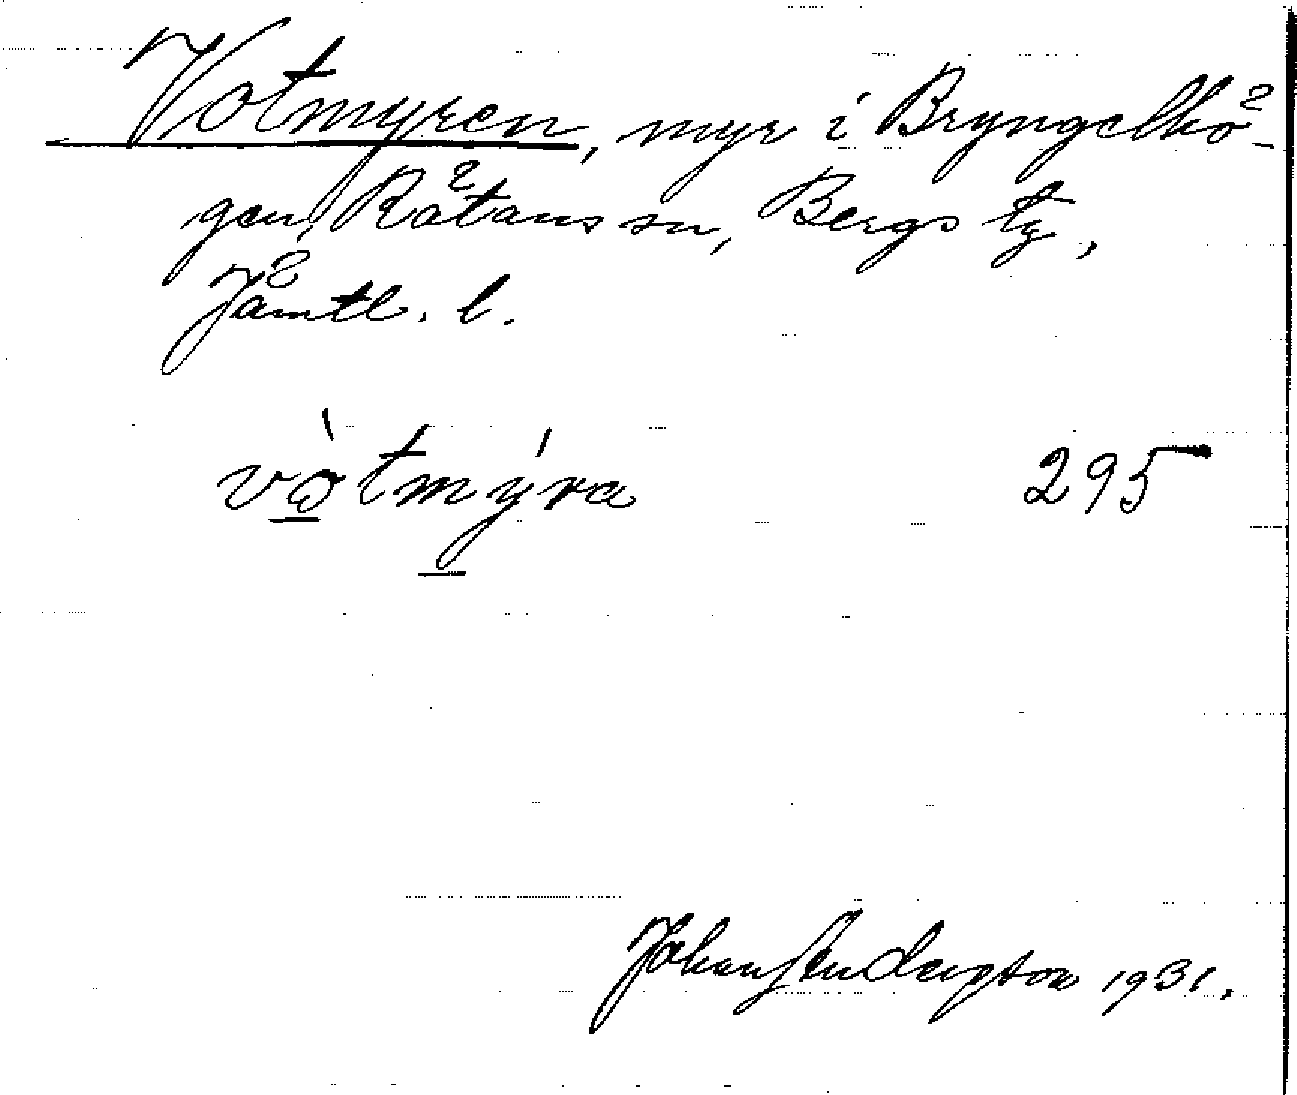 Votmyren, myr i Bryngelhö-
gen, Rätans sn, Bergs tg,
Jämtl. l.
vòtmýra 295
Johan Henderson 1931.